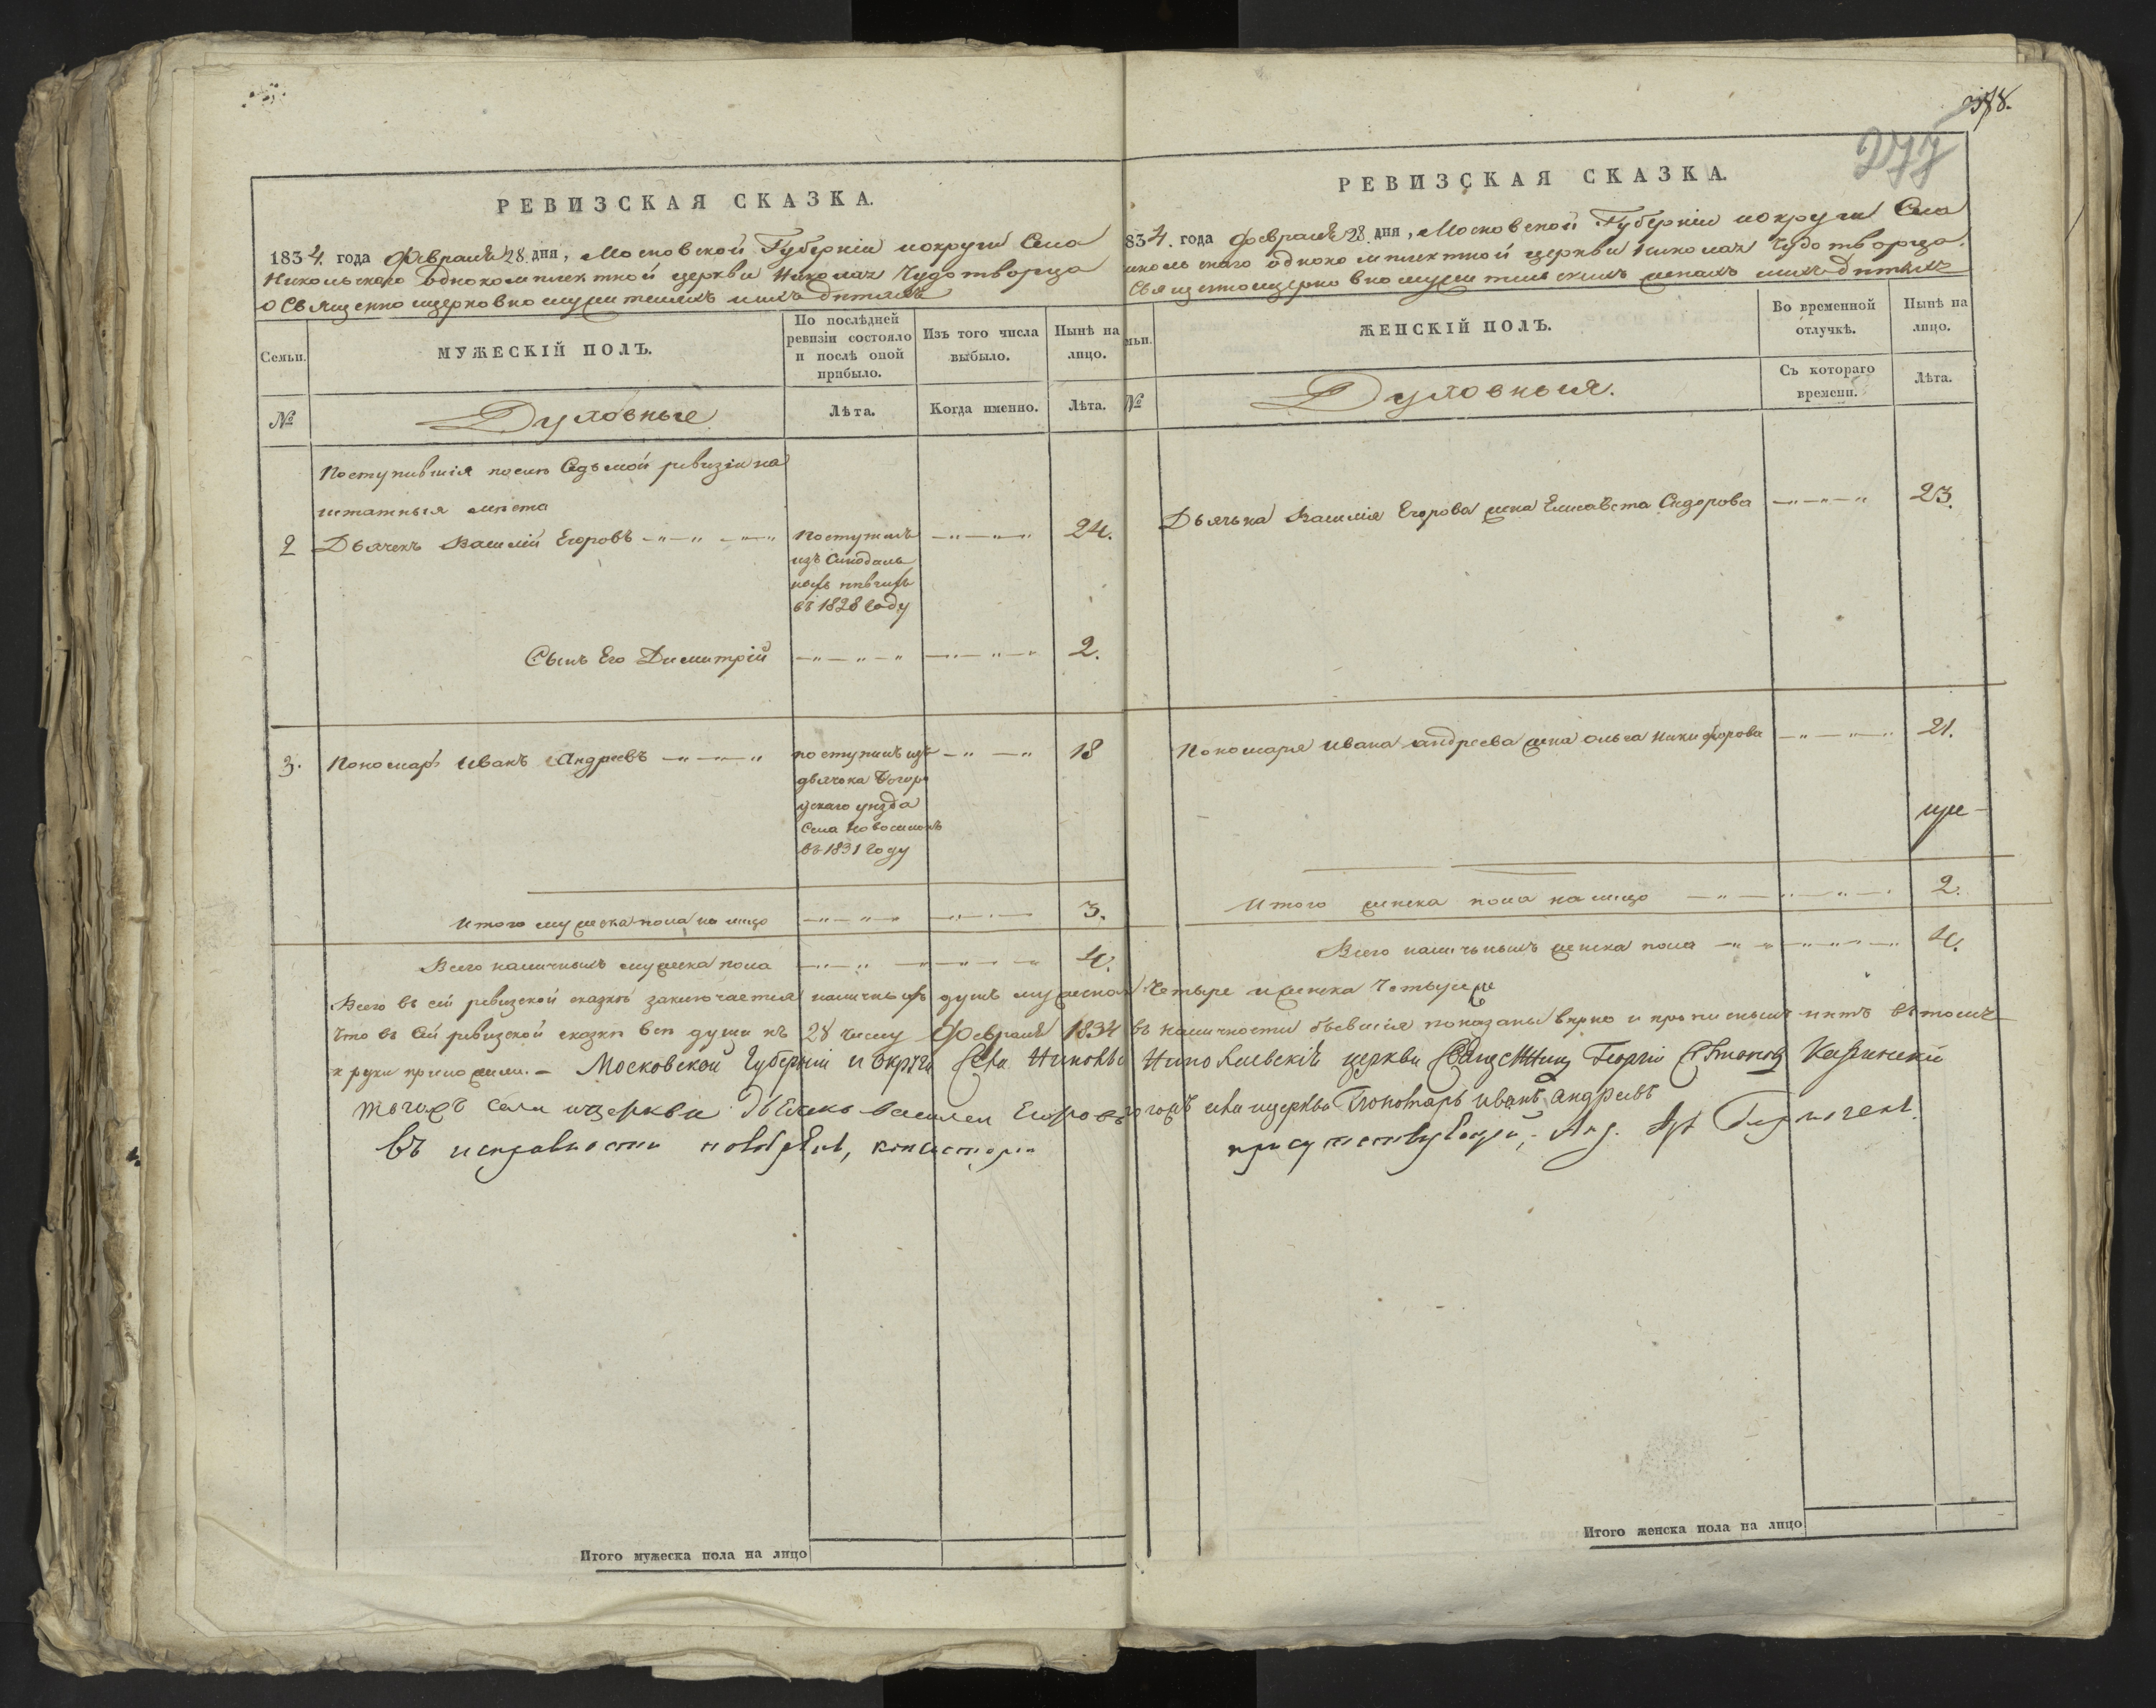 РЕВИЗСКАЯ СКАЗКА.
1834. года Февраля 28. дня, Московской Губерніи и округи Села
Никольского однокомплектной церкви Николая Чудотворца
о Священноцерковнослужителяхъ и ихъ детяхъ
Семьи.
МУЖЕСКІЙ ПОЛЪ.
По послѣдней ревизіи состояло и послѣ оной прибыло.
Изъ того числа выбыло.
Нынѣ на лицо.
№
Духовные
Лѣта.
Когда именно.
Лѣта.
Поступившія после Седьмой ревизіи на
штатныя места
2 Дьячекъ Василій Егоровъ Поступилъ 24.
изъ Синодаль
ныхъ певчихъ
въ 1828 году
Сынъ Его Димитрій 2.
3. Пономарь Иванъ Андреевъ поступилъ изъ 18
дьячка Богоро
дскаго уезда
Села
въ 1831 году
Итого мужеска пола на лицо 3.
Всего наличныхъ мужеска пола 4.
378.
277
РЕВИЗСКАЯ СКАЗКА.
834. года Февраля 28. дня, Московской Губерніи и округи Села
икольскаго однокомплектной церкви Николая Чудотворца.
Священноцерковнослужительскихъ женахъ и ихъ детяхъ
мьи.
ЖЕНСКІЙ ПОЛЪ.
Во временной отлучкѣ.
Нынѣ на лицо.
№
Духовныя.
Съ котораго времени.
Лѣта.
Дьячка Василія Егорова жена Елисавета Сидорова 23.
Пономаря Ивана Андреева жена Ольга Никифорова 21.
Итого женска пола на лицо 2.
Всего наличныхъ женска пола 4.
Всего въ сей ревизской сказке заключается наличныхъ душъ мужеска Четыре и женска Четыре
Что въ Сей ревизской сказке все души къ 28 числу Февраля 1834 въ наличности бывшія показаны верно и прописныхъ нетъ въ томъ
и руки приложили. – Московской Губерніи и Округи Села Николь Николаевскія церкви Священникъ Георгій
тогожъ села и церкви Дьячекъ Василей Егоровъ тогожъ села и церкви Пономарь Иванъ Андреевъ
Въ исправности поверялъ, консисторіи присутствующій,
Итого мужеска пола на лицо
Итого женска пола на лицо